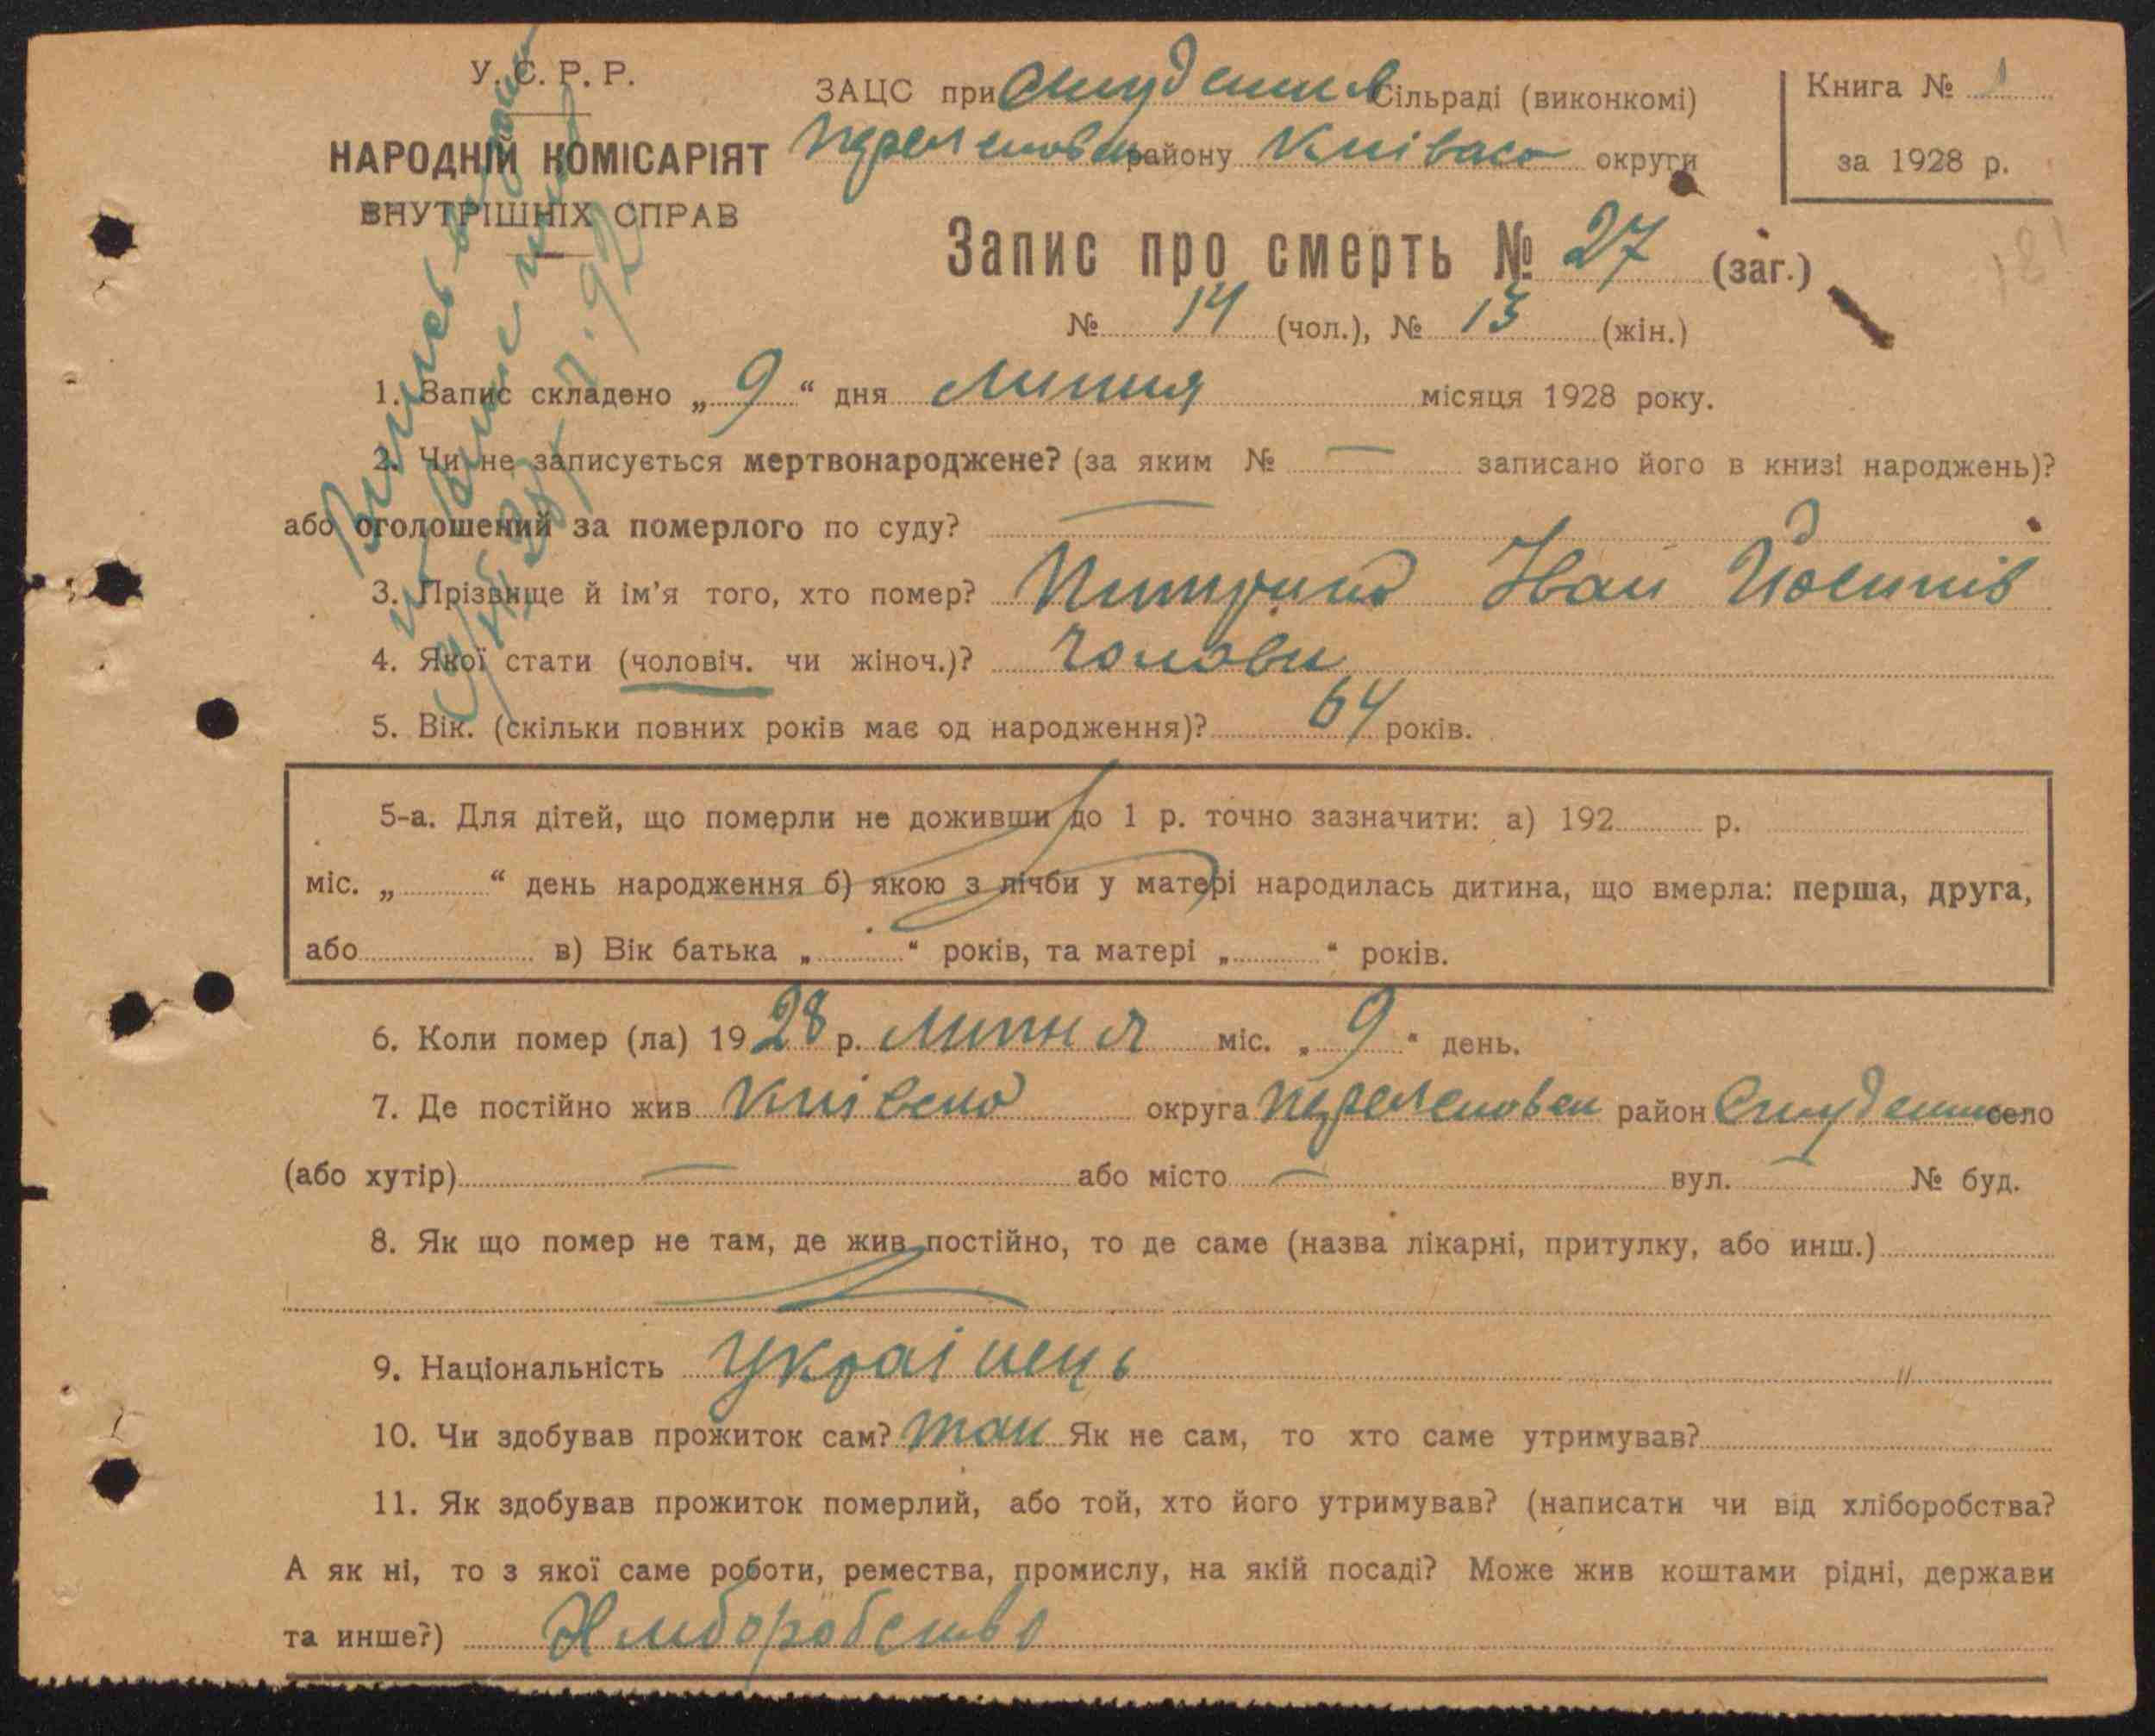 У. С. Р. Р.
НАРОДНІЙ КОМІСАРІЯТ
ВНУТРІШНІХ СПРАВ
ЗАЦС при Студеник Сільраді (виконкомі)
району Київсько округи
Книга № 1
за 1928 р.
Запис про смерть № 27 (заг.)
№ 14 (чол.), № 13 (жін.)
1. Запис складено „ 9 “ дня Липня місяця 1928 року.
2. Чи не записується мертвонароджене? (за яким № — записано його в книзі народжень)?
або оголошений за померлого по суду? —
3. Прізвище й ім'я того, хто помер? Іван Йосипів
4. Якої стати (чоловіч. чи жіноч.)? Чолові
5. Вік. (скільки повних років має од народження)? 64 років.
5-а. Для дітей, що померли не доживши до 1 р. точно зазначити: а) 192 р.
міс. „ “ день народження б) якою з лічби у матері народилась дитина, що вмерла: перша, друга,
або в) Вік батька „ “ років, та матері „ “ років.
6. Коли помер (ла) 1928 р. Липня міс. „ 9 “ день.
7. Де постійно жив округа район село
(або хутір) — або місто — вул. — № буд.
8. Як що помер не там, де жив постійно, то де саме (назва лікарні, притулку, або инш.)
9. Національність Украінець
10. Чи здобував прожиток сам? так Як не сам, то хто саме утримував?
11. Як здобував прожиток померлий, або той, хто його утримував? (написати чи від хліборобства?
А як ні, то з якої саме роботи, ремества, промислу, на якій посаді? Може жив коштами рідні, держави
та инше?) Хліборобство